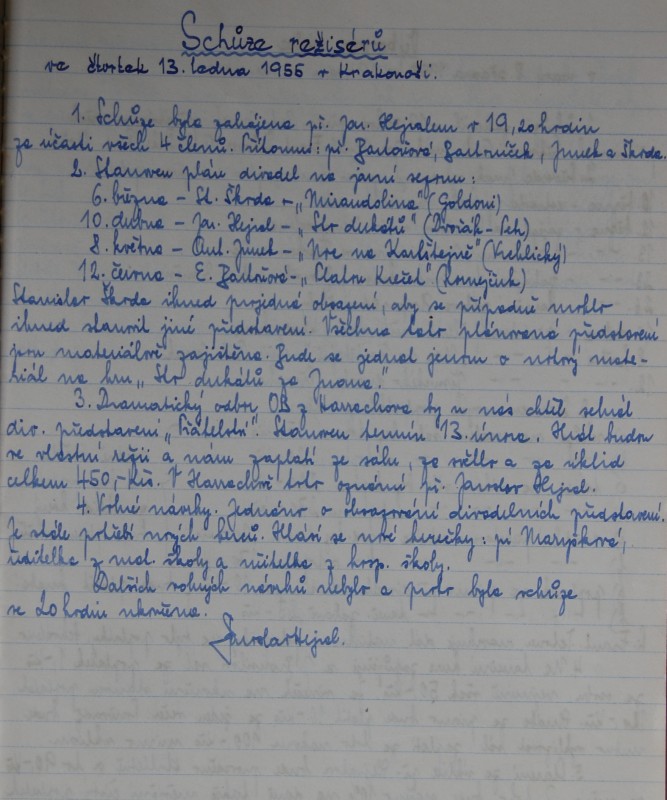 Schůze režisérů
ve čtvrtek 13. ledna 1955 v Krakonoši.
1. Schůze byla zahájena př. Jar. Hejralem v 19,20 hodin
za účasti všech 4 členů. Přítomni: př. Bartoňová, Bartoníček, Junek a Škrda.
2. Stanoven plán divadel na jarní sezonu:
6. března – St. Škrda – „Mirandolina" (Goldoni)
10. dubna – Jar. Hejral – „Sto dukátů" (Dvořák -
8. května – Ant. Junek – „Noc na Karlštejně" (Vrchlický)
12. června – E. Bartoňová – „
Stanislav Škrda ihned projedná obsazení, aby se případně mohlo
ihned stanovit jiné představení. Všechna tato plánovaná představení
jsou materiálově zajištěna. Bude se jednat jenom o nový mate-
riál na hru „Sto dukátů za Juana."
3. Dramatický odbor OB z Harrachova by u nás chtěl sehrát
div. představení „Přátelství". Stanoven termín 13. února. Hrál budou
ve vlastní režii a nám zaplatí ze sálu, za světlo a za úklid
celkem 450,- Kčs. V Harrachově toto oznámí př. Jaroslav Hejral.
4. Volné návrhy. Jednáno o obsazování divadelních představení.
Je stále potřebí nových herců. Hlásí se nové herečky: pí
učitelka z mat. školy a učitelka z hosp. školy.
Dalších volných návrhů nebylo a proto byla schůze
ve 20 hodin ukončena.
Jaroslav Hejral.